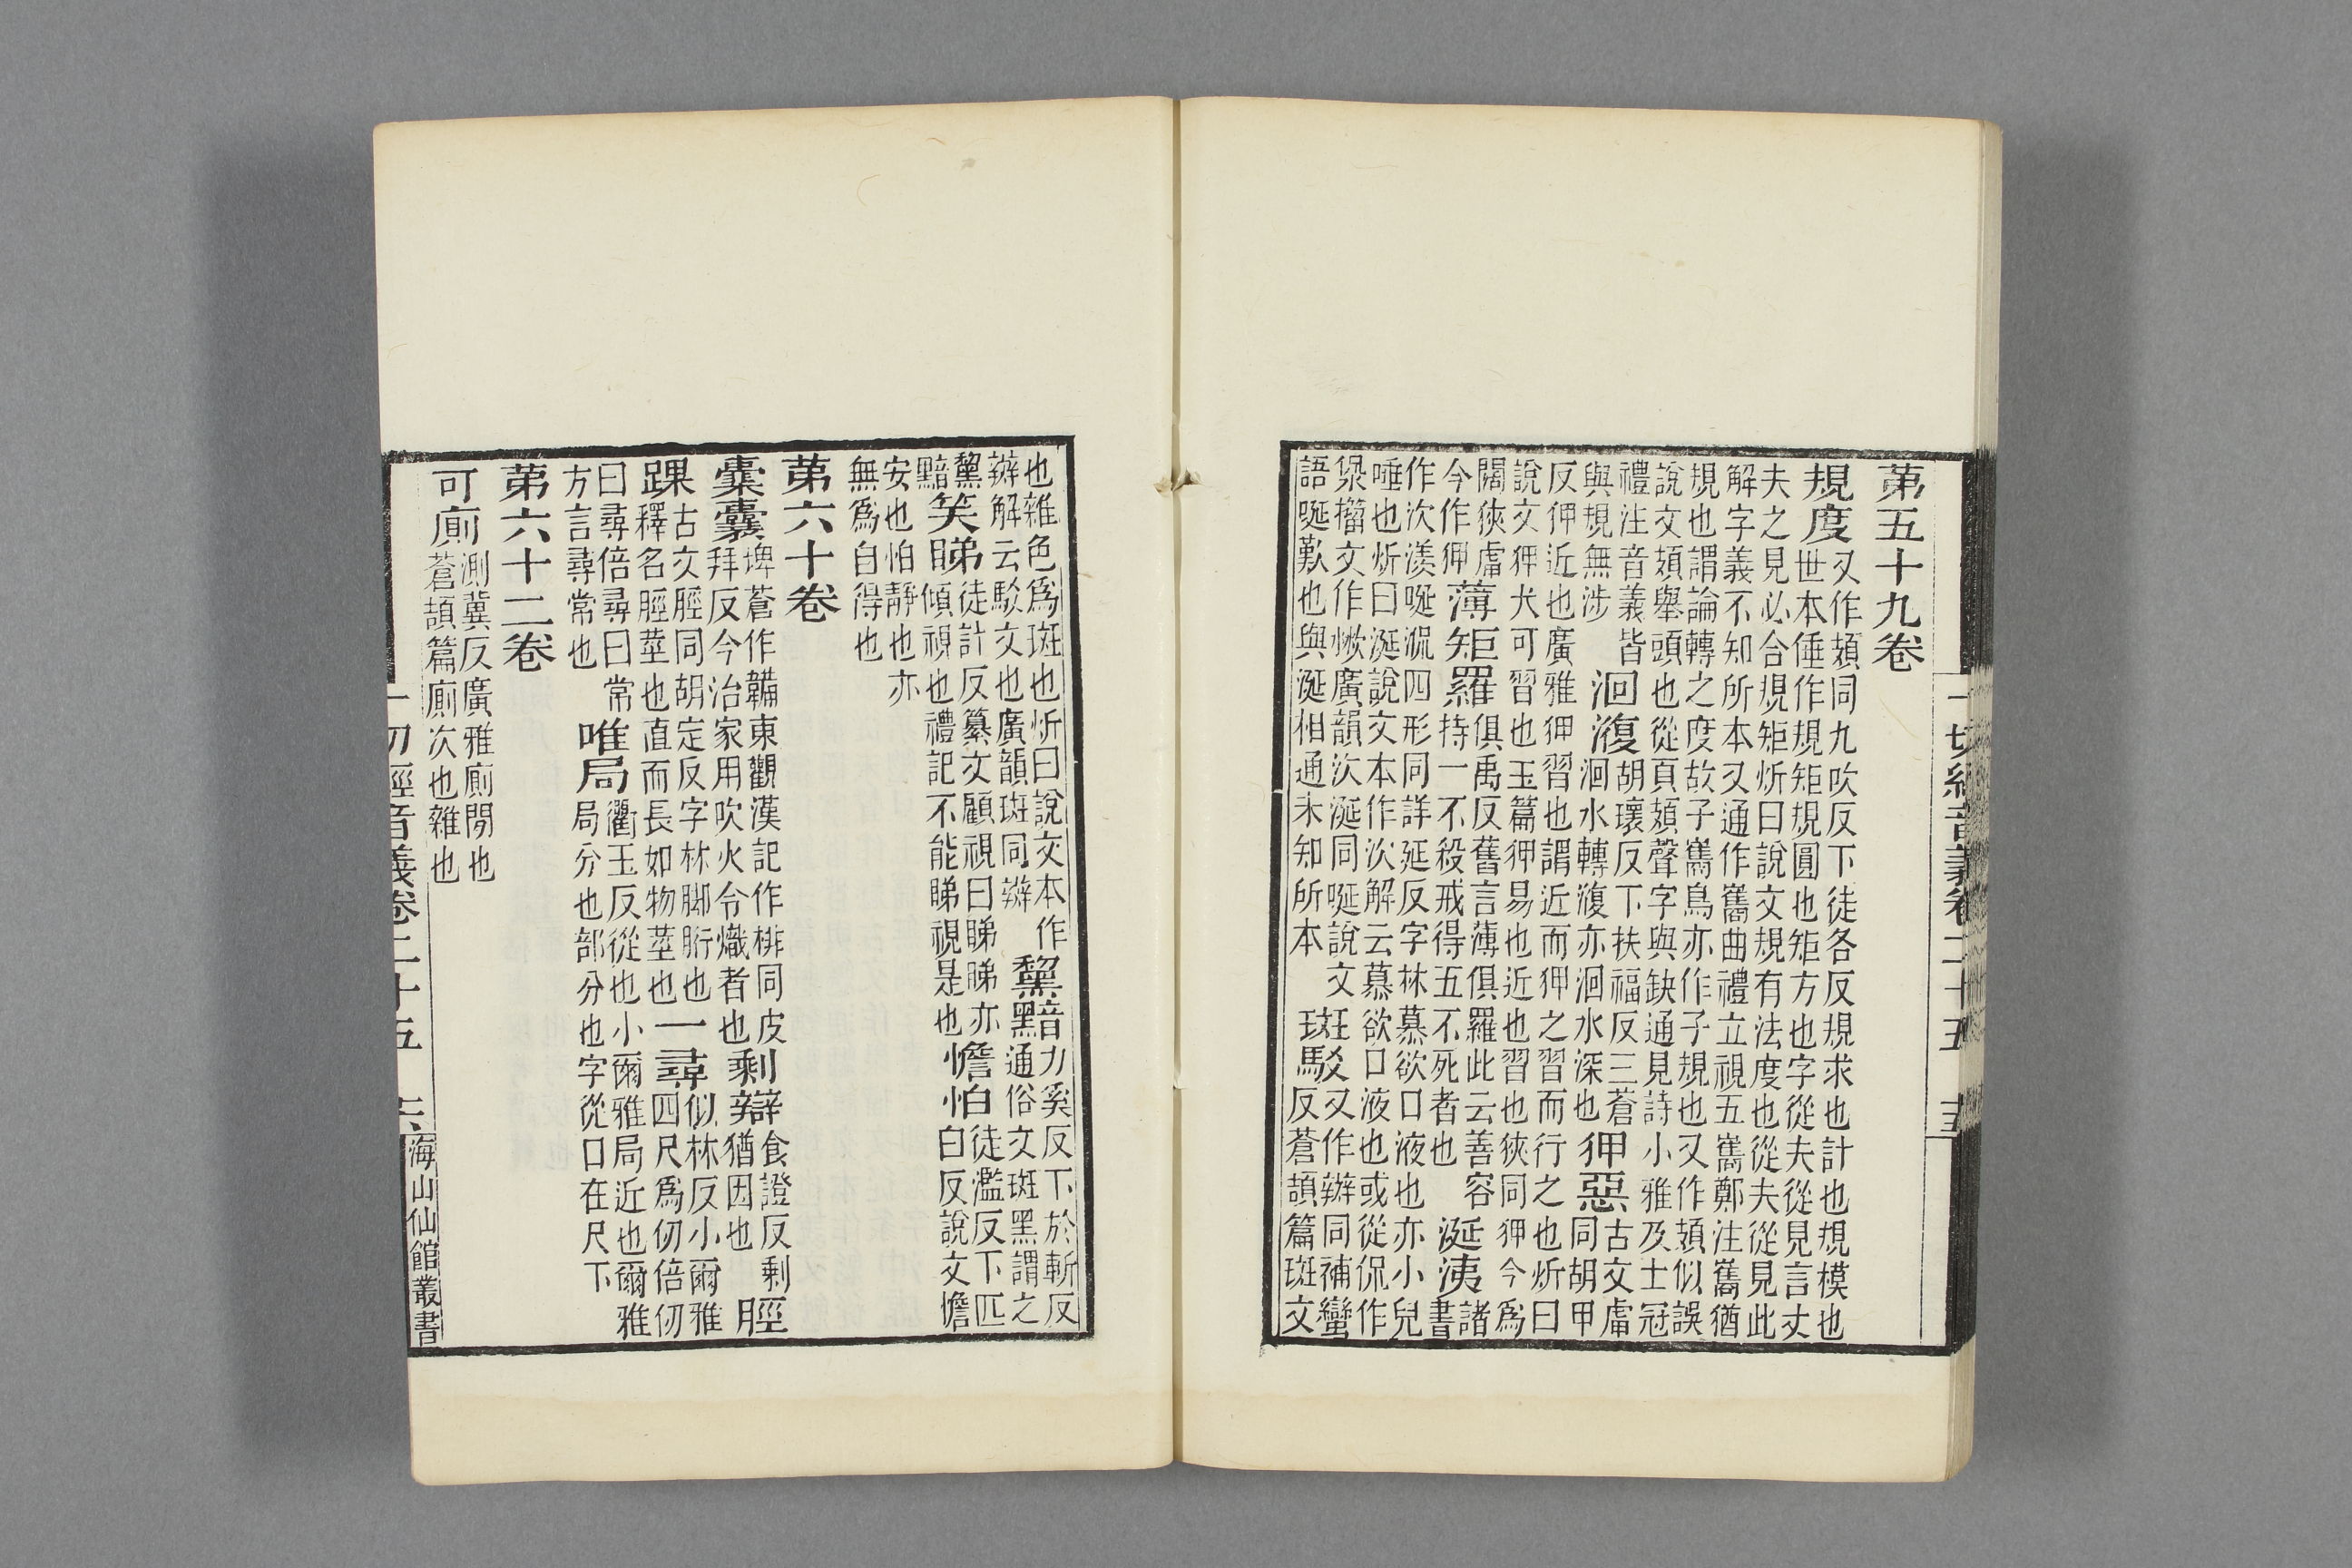 一切經音義卷二十五
第五十九卷
規度
又作頍同九吹反下徒各反規求也計也規模也
世本倕作規矩規圓也矩方也字從夫從見言丈
夫之見必合規矩炘曰說文規有法度也從夫從見此
解字義不知所本又通作巂曲禮立視五巂鄭注巂猶
規也謂論轉之度故子巂鳥亦作子規也又作頍似誤
說文頍舉頭也從頁頍聲字與缺通見詩小雅及士冠
禮注音義皆
與規無涉
洄澓
胡瓌反下扶福反三蒼
洄水轉澓亦洄水深也
狎惡
古文㢑
同胡甲
反狎近也廣雅狎習也謂近而狎之習而行之也炘曰
說文狎犬可習也玉篇狎易也近也習也狹同狎今爲
闊狹㢑
今作狎
薄矩羅
俱禹反舊言薄俱羅此云善容
持一不殺戒得五不死者也
涎洟
諸
書
作次漾唌㳄四形同詳延反字林慕欲口液也亦小兒
唾也炘曰涎說文本作次解云慕欲口液也或從侃作
㳄籀文作㵪廣韻次涎同唌說文
語唌歎也與涎相通未知所本
斑駁
又作辬同補蠻
反蒼頡篇斑文
也雜色爲斑也炘曰說文本作
辬解云駁文也廣韻斑同辬
黧黯
力奚反下於斬反
通俗文斑黑謂之
黧
黯
笑睇
徒計反纂文顧視曰睇睇亦
傾視也禮記不能睇視是也
憺怕
徒濫反下匹
白反說文憺
安也怕靜也亦
無爲自得也
第六十卷
橐囊
埤蒼作韛東觀漢記作排同皮
拜反今治家用吹火令熾者也
剩辯
食證反剩
猶因也
脛
踝
古文脛同胡定反字林脚胻也
釋名脛莖也直而長如物莖也
一尋
似林反小爾雅
四尺爲仞倍仞
曰尋倍尋曰常
方言尋常也
唯局
衢玉反從也小爾雅局近也爾雅
局分也部分也字從口在尺下
第六十二卷
可廁
測冀反廣雅廁閒也
蒼頡篇廁次也雜也
一切經音義卷二十五
海山仙館叢書